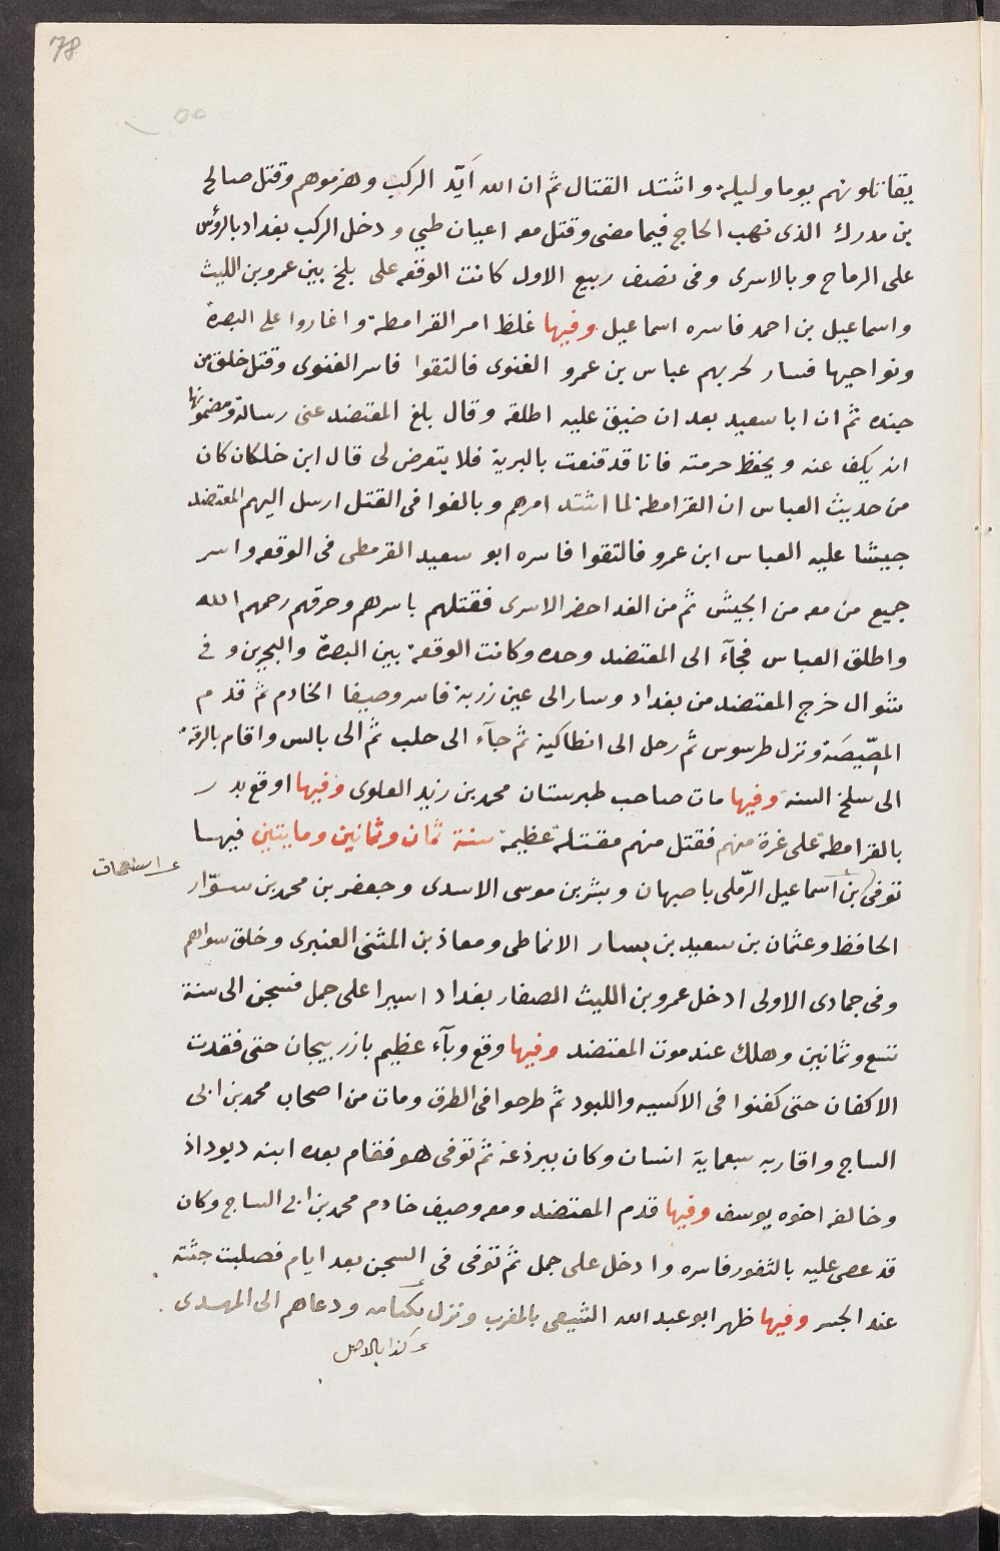 78
٥٥
يقاتلونهم يوما وليلة واشتد القتال ثم ان الله اَيّد الركب وهزموهم وقتل صالح
بن مدرك الذى نهب الحاج فيما مضى وقتل معه اعيان طيي ودخل الركب بغداد بالرؤس
على الرماح وبالاسرى وفى نصف ربيع الاول كانت الوقعه على بلخ بين عمرو بن الليث
واسماعيل بن احمد فاسره اسماعيل وفيها غلظ امر القرامطة واغاروا على البصرة
ونواحيها فسار لحربهم عباس بن عمرو الغنوى فالتقوا فاسر الغنوى وقتل خلق من
جنده ثم ان ابا سعيد بعد ان ضيق عليه اطلقه وقال بلغ المعتضد عنى رسالة ومضمونها
انه يكف عنه ويحفظ حرمته فانا قد قنعت بالبرية فلا يتعرض لى قال ابن خلكان كان
من حديث العباس ان القرامطة لما اشتد امرهم وبالغوا فى القتل ارسل اليهم المعتضد
جيشا عليه العباس ابن عمرو فالتقوا فاسره ابو سعيد القرمطى فى الوقعه واسر
جميع من معه من الجيش ثم من الغد احضر الاسرى فقتلهم باسرهم وحرقهم رحمهم الله
واطلق العباس فجآء الى المعتضد وحده وكانت الوقعة بين البصرة والبحرين وفى
شوال خرج المعتضد من بغداد وسار الى عين زربة فاسر وصيفا الخادم ثم قدم
المصّيصَة ونزل طرسوس ثم رحل الى انطاكية ثم جآء الى حلب ثم الى بالس واقام بالرقة
الى سلخ السنة وفيها مات صاحب طبرستان محمد بن زيد العلوى وفيها اوقع بدر
بالقرامطة على غرة منهم فقتل منهم مقتلة عظيمة سنة ثمان وثمانين ومايتين فيها
توفى بن اسماعيل الرّملى باصبهان وبشر بن موسى الاسدى وجعفر بن محمد بن سوّار
ء اسحاق
الحافظ وعثمان بن سعيد بن بسار الانماطى ومعاذ بن المثنى العنبرى وخلق سواهم
وفى جمادى الاولى ادخل عمرو بن الليث الصفار بغداد اسيرا على جمل فسجن الى سنة
تسع وثمانين وهلك عند موت المعتضد وفيها وقع وبآء عظيم باذربيجان حتى فقدت
الاكفان حتى كفنوا فى الاكسيه واللبود ثم طرحوا فى الطرق ومات من اصحاب محمد بن ابى
الساج واقاربه سبعماية انسان وكان ببرذعة ثم توفى هو فقام بعده ابنه ديوداذ
وخالفه اخوه يوسف وفيها قدم المعتضد ومعه وصيف خادم محمد بن ابى الساج وكان
قد عصى عليه بالثغور فاسره وادخل على جمل ثم توفى فى السجن بعد ايام فصلبت جثته
عند الجسر وفيها ظهر ابو عبد الله الشيعى بالمغرب ونزل بكتامه ودعاهم الى المهدى
ء كذا بالاصل